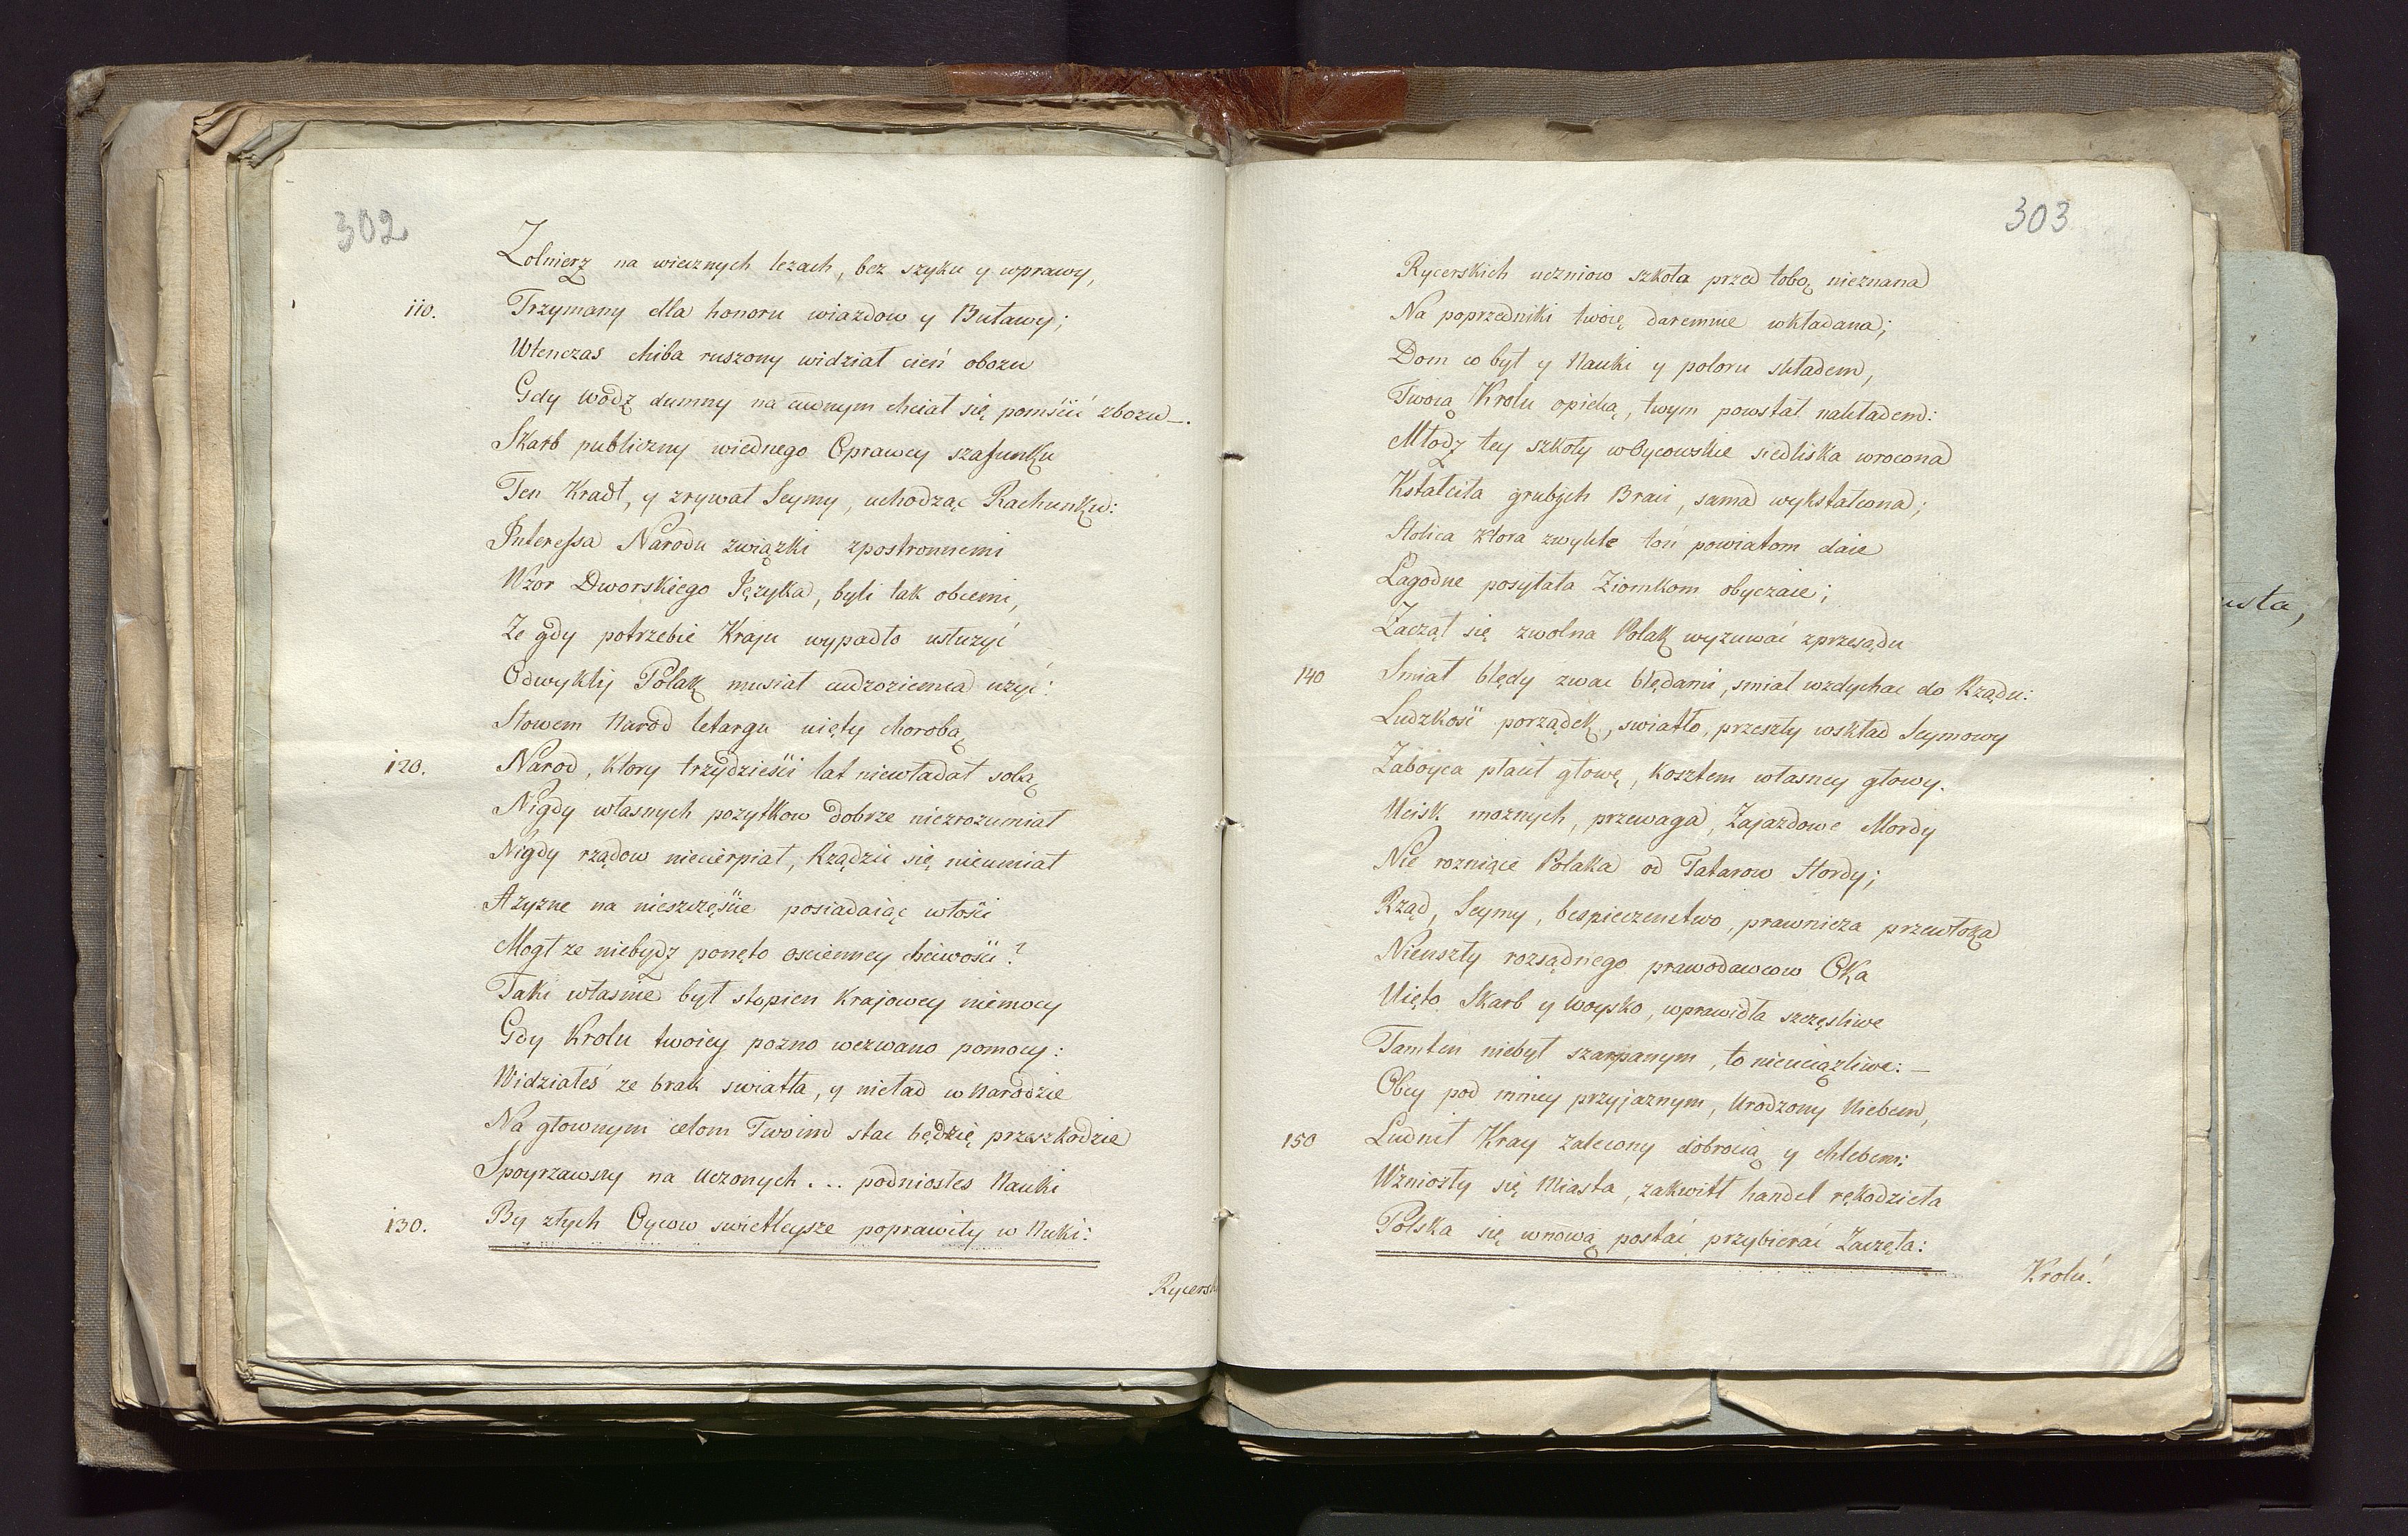 302
Zolnierz na wiecznych lezach, bez szyku y wprawy,
110. Trzymany dla honoru wiazdow y Buławy;
Wtenczas chiba ruszony widział cień obozu
Gdy wodz dumny na cudzym chciał się pomścić zbozu—.
Skarb publiczny wiednego Oprawcy szafunku
Ten Kradł, y zrywał Seymy, uchodząc Rachunku:
Interessa Narodu związki zpostronnemi
Wzor Dworskiego Języka, byli tak obcemi,
Ze gdy potrzebie Kraju wypadło usłuzyć
Odwykły Polak musiał cudzoziemca uzyć:
Słowem Narod letargu uięty chorobą
120. Narod, ktory trzydzieści lat niewładał sobą
Nigdy własnych pozytkow dobrze niezrozumiał
Nigdy rządow niecierpiał, Rządzic się nieumiał
A zyzne na nieszczęście posiadaiąc włości
Mogł ze niebydz ponęto osciennej chciwości?
Taki własnie był stopien krajowey niemocy
Gdy Krolu twoiey pozno wezwano pomocy:
Widziałeś ze brak swiatła, y nieład w Narodzie
Na głownym celom Twoim stac będzię przeszkodzie
Spoyrzawszy na Uczonych... podniosłes Nauki
130. By złych Oycow swietleysze poprawiły wnuki:
Rycersk
303
Rycerskich uczniow szkoła przed tobą nieznana
Na poprzedniki twoię daremnie wkładana;
Dom co był y Nauki y poloru składem,
Twoią Krolu opieką, twym powstał nakładem:
Młodz tey szkoły w Oycowskie siedliska wrocona
Kształciła grubych Braci, sama wykształcona;
Stolica ktora zwykłe toń powiatom daie
Łagodne posyłała Ziomkom obyczaie;
Zaczął się zwolna Polak wyzuwać zprzesądu
140 Smiał błędy zwac błędami, smiał wzdychac do Rządu:
Ludzkość porządek, swiatło, przeszły wskład Seymowy
Zaboyca płacił głowę, kosztem własney głowy.
Ucisk moznych, przewaga, Zajazdowe Mordy
Nie rozniące Polaka od Tatarow Hordy;
Rząd, Seymy, bespieczenstwo, prawnicza przewłoka
Nieuszły rozsądnego prawodawcow Oka
Uięto Skarb y woysko, wprawidła szczęsliwe
Tamten niebył szarpanym, to nieuciązliwe: —
Obcy pod mniey przyjaznym, Urodzony Niebem,
150 Ludnił Kray zalecony dobrocią y chlebem;
Wzniosły się Miasta, zakwitł handel rękodzieła
Polska się wnową postać przybierać Zaczęła:
Krolu!
usta,